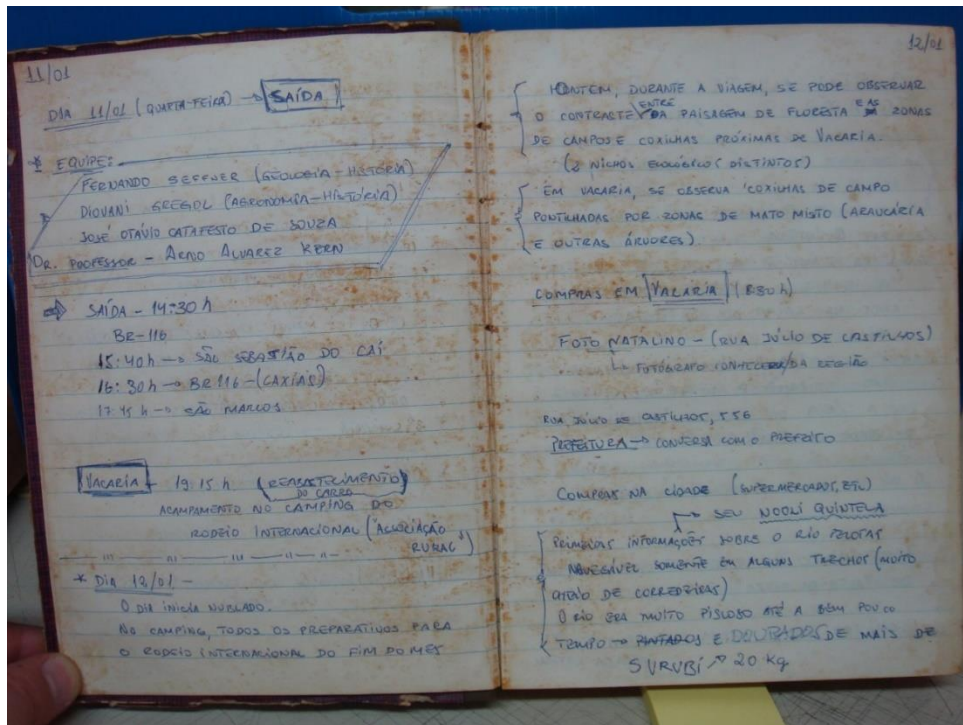 11/01
DIA 11/01 (QUARTA-FEIRA) → SAÍDA
* EQUIPE:
FERNANDO SEFFNER (GEOLOGIA - HISTÓRIA)
DIOVANI GREGOL (AGRONOMIA - HISTÓRIA)
JOSÉ OTÁVIO CATAFESTO DE SOUZA
DR. PROFESSOR - ARNO ALVAREZ KERN
⇒ SAÍDA - 14:30 h
BR-116
15:40 h → SÃO SEBASTIÃO DO CAÍ
16:30 h → BR 116 - (CAXIAS)
17:45 h → SÃO MARCOS
VACARIA - 19:15 h (REABASTECIMENTO
DO CARRO)
ACAMPAMENTO NO CAMPING DO
RODEIO INTERNACIONAL ("ASSOCIAÇÃO
RURAL")
* DIA 12/01 -
O DIA INICIA NUBLADO.
NO CAMPING, TODOS OS PREPARATIVOS PARA
O RODEIO INTERNACIONAL DO FIM DO MÊS
12/01
HONTEM, DURANTE A VIAGEM, SE PODE OBSERVAR
O CONTRASTE ENTRE A PAISAGEM DE FLORESTA E AS ZONAS
DE CAMPOS E COXILHAS PRÓXIMAS DE VACARIA.
(2 NICHOS ECOLÓGICOS DISTINTOS)
EM VACARIA, SE OBSERVA COXILHAS DE CAMPO
PONTILHADAS POR ZONAS DE MATO MISTO (ARAUCÁRIA
E OUTRAS ÁRVORES)
COMPRAS EM VACARIA (830 h)
FOTO NATALINO - (RUA JÚLIO DE CASTILHOS)
↳ FOTÓGRAFO CONHECEDOR DA REGIÃO
RUA JÚLIO DE CASTILHOS, 556
PREFEITURA → CONVERSA COM O PREFEITO
COMPRAS NA CIDADE (SUPERMERCADOS, ETC)
→ SEU NOOLI QUINTELA
PRIMEIRAS INFORMAÇÕES SOBRE O RIO PELOTAS
NAVEGÁVEL SOMENTE EM ALGUNS TRECHOS (MUITO
CHEIO DE CORREDEIRAS)
O RIO ERA MUITO PISCOSO ATÉ A BEM POUCO
TEMPO → PINTADOS E DOURADOS DE MAIS DE
SURUBÍ ↗ 20 Kg